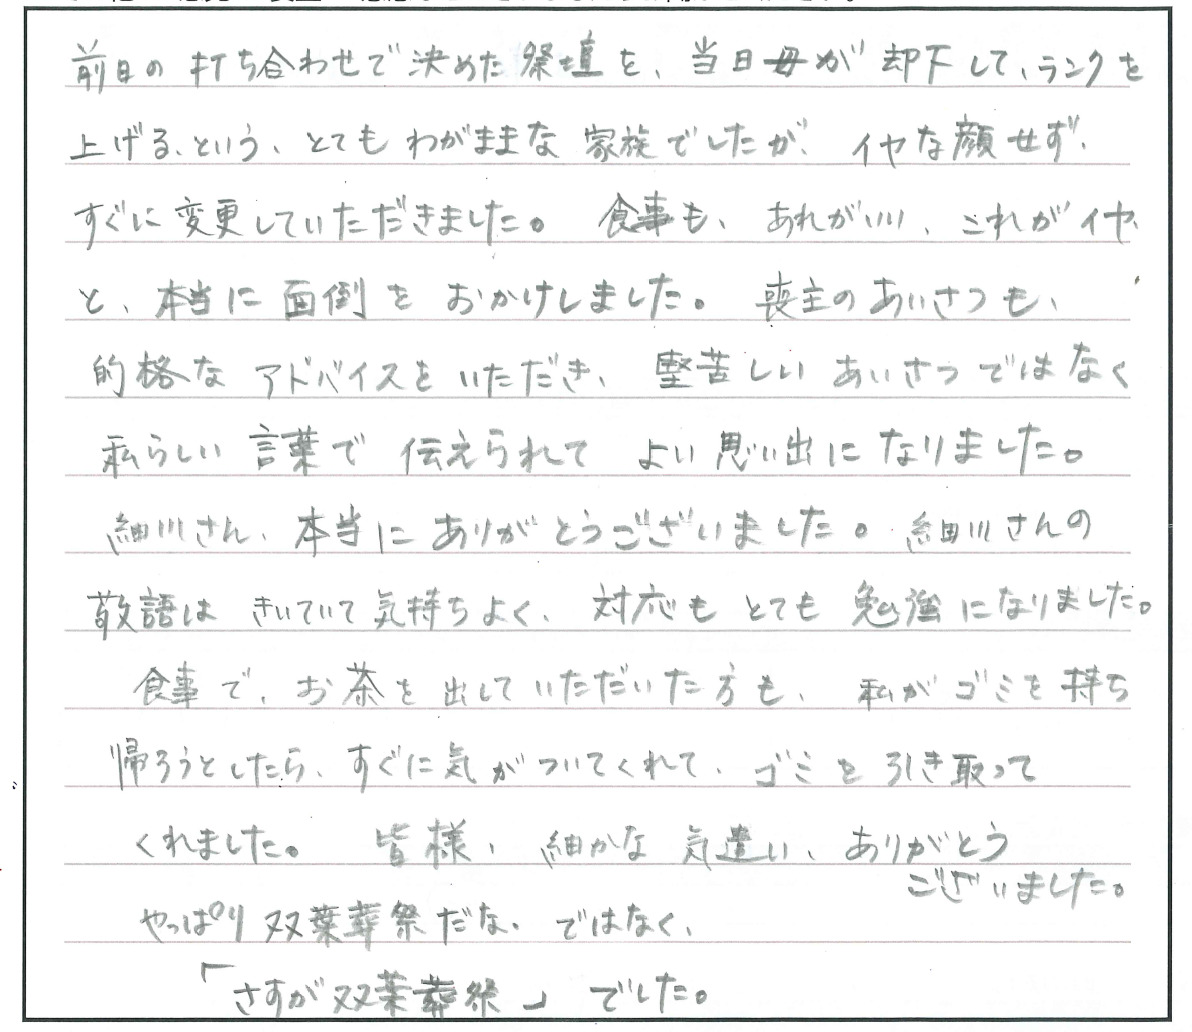 前日の打ち合わせで決めた祭壇を、当日母が却下して、ランクを
上げる、という、とてもわがままな家族でしたが、イヤな顔せず、
すぐに変更していただきました。食事も、あれがいい、これがイヤ、
と、本当に面倒をおかけしました。喪主のあいさつも、
的格なアドバイスをいただき、堅苦しいあいさつではなく
私らしい言葉で伝えられてよい思い出になりました。
細川さん、本当にありがとうございました。細川さんの
敬語はきいていて気持ちよく、対応もとても勉強になりました。
食事で、お茶を出していただいた方も、私がゴミを持ち
帰ろうとしたら、すぐに気がついてくれて、ゴミを引き取って
くれました。皆様、細かな気遣い、ありがとう
ございました。
やっぱり双葉葬祭だな、ではなく、
「さすが双葉葬祭」でした。